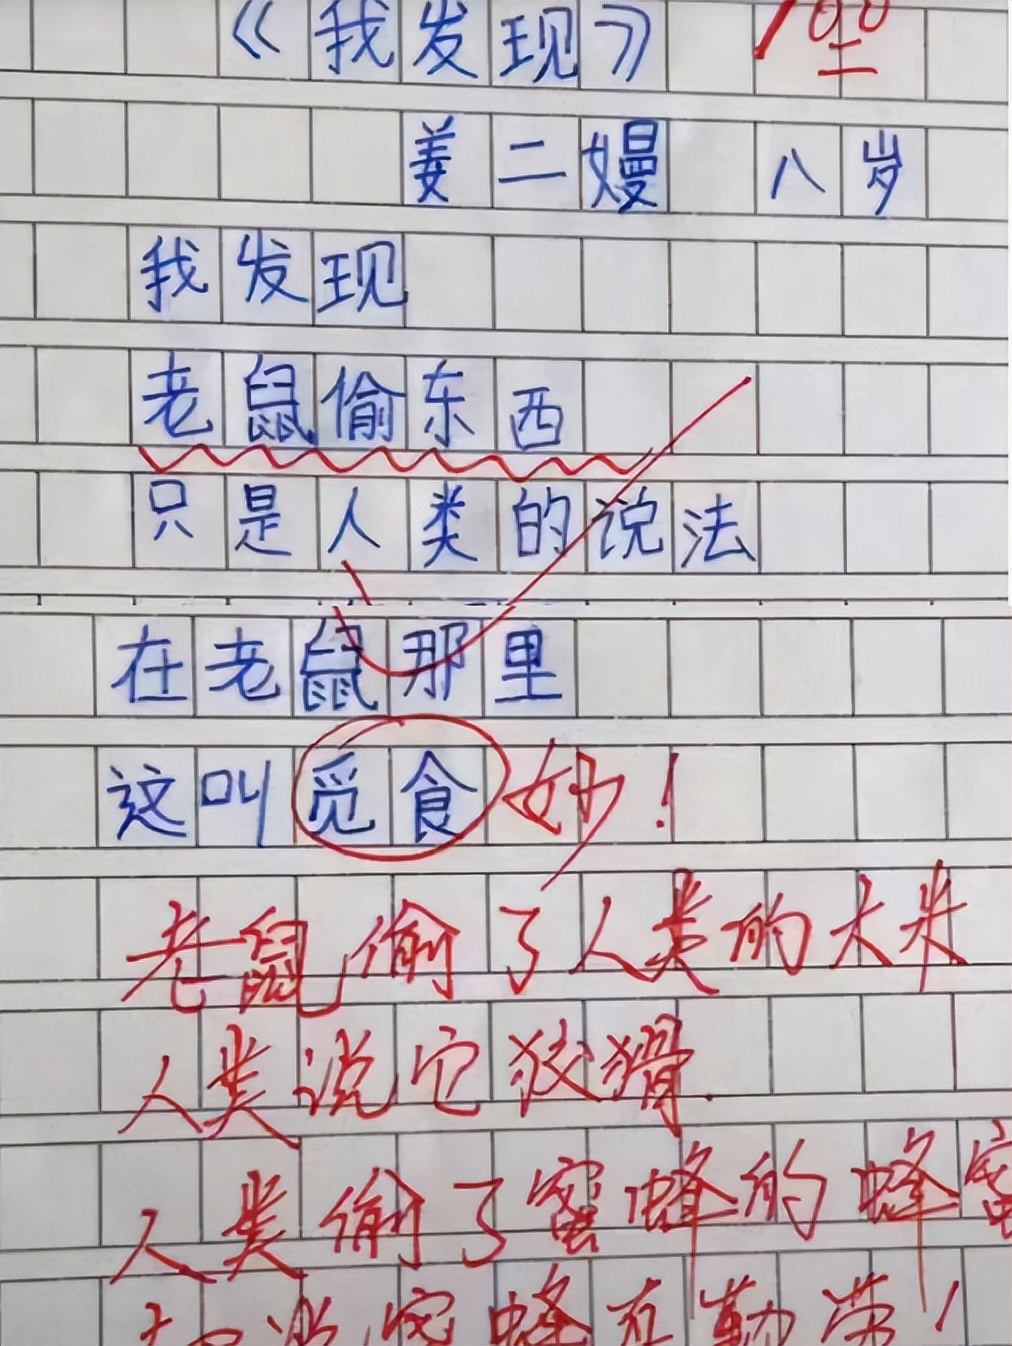 《我发现》 100
姜二嫚 八岁
我发现
老鼠偷东西
只是人类的说法
在老鼠那里
这叫觅食 妙！
老鼠偷了人类的大米
人类说它狡猾.
人类偷了蜜蜂的蜂蜜
蜜蜂在勤劳！